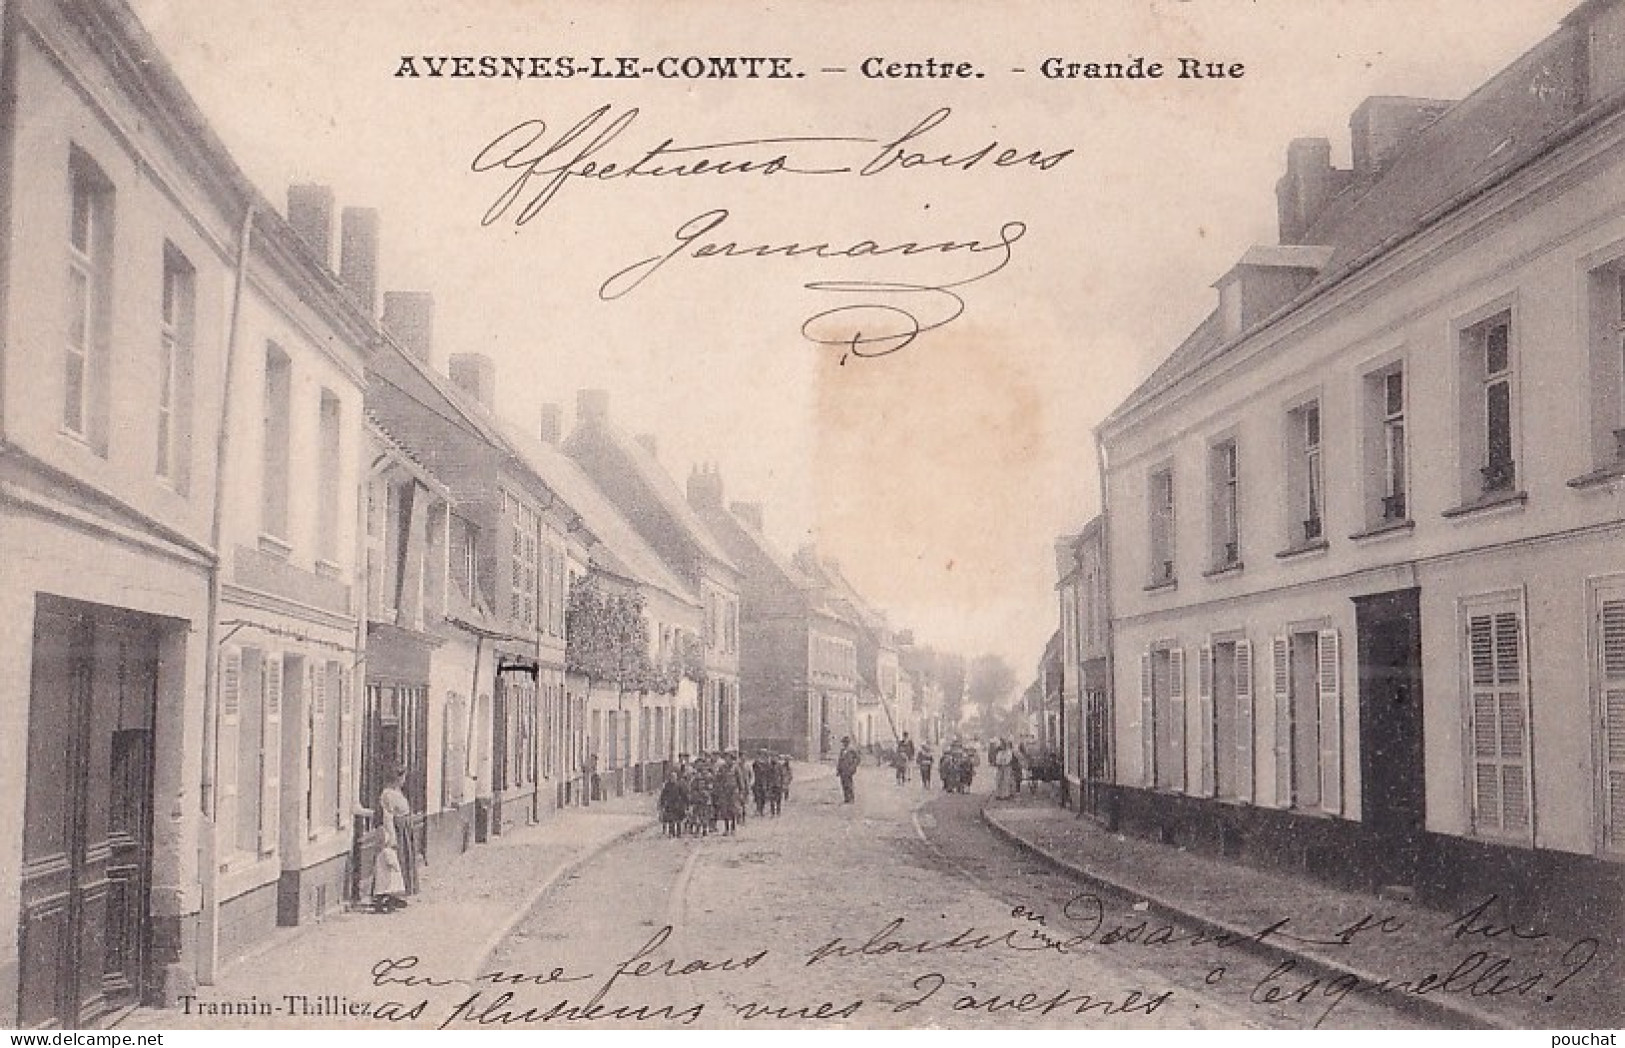 AVESNES-LE-COMTE. – Centre. - Grande Rue
Affectueux baisers
Germaine
Tu me ferais plaisir en me disant si tu
as plusieurs vues d'avesnes. Lesquelles?
Trannin-Thilliez
pouchat